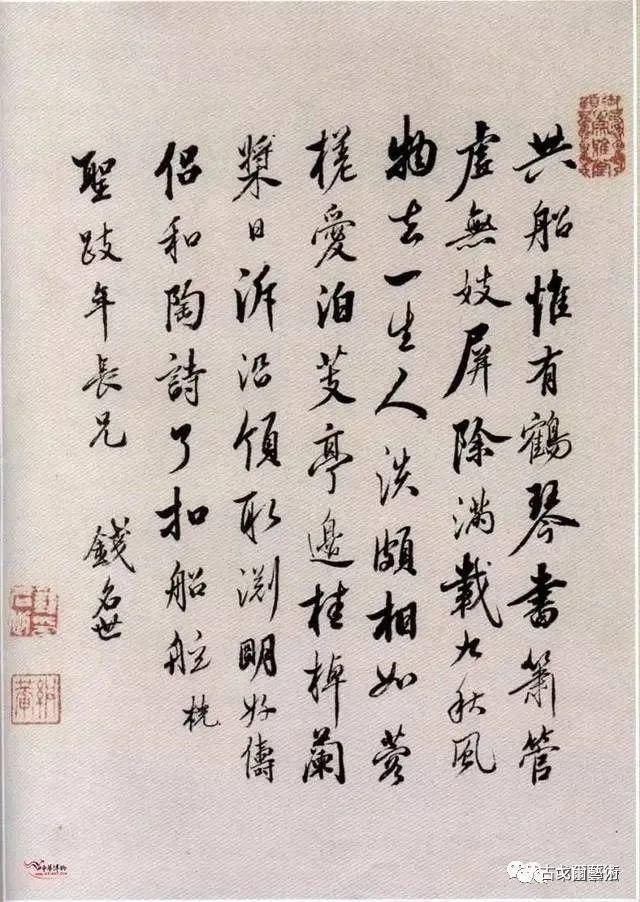 共船惟有鶴琴書簫管
虛無妓屏除滿載九秋風
物去一生人淡頗相如蓼
槎愛泊芰亭邊桂棹蘭
槳日泝沿領取淵明好儔
侶和陶詩了扣船舷
聖跂年長兄
錢名世
中華博物
古戈爾藝術